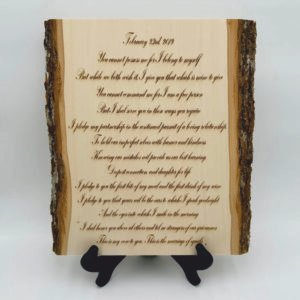 February 23rd, 2019
You cannot possess me for I belong to myself
But while we both wish it, I give you that which is mine to give
You cannot command me for I am a free person
But I shall serve you in those ways you require
I pledge my partnership in the continual pursuit of a loving relationship
To hold our imperfect selves with humor and kindness
Knowing our mistakes will provide us our best learning
Deepest emotions and laughter for life
I pledge to you the first bite of my meal and the first drink of my wine
I pledge to you that yours will be the eyes to which I speak goodnight
And the eyes into which I wake in the morning
I shall honor you above all others and tell no strangers of our grievances
This is my vow to you. This is the marriage of equals.